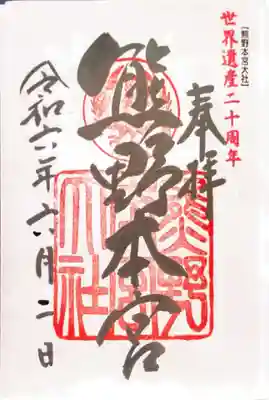 ［熊野本宮大社］
世界遺産二十周年
奉拝
熊野本宮
令和六年六月二日